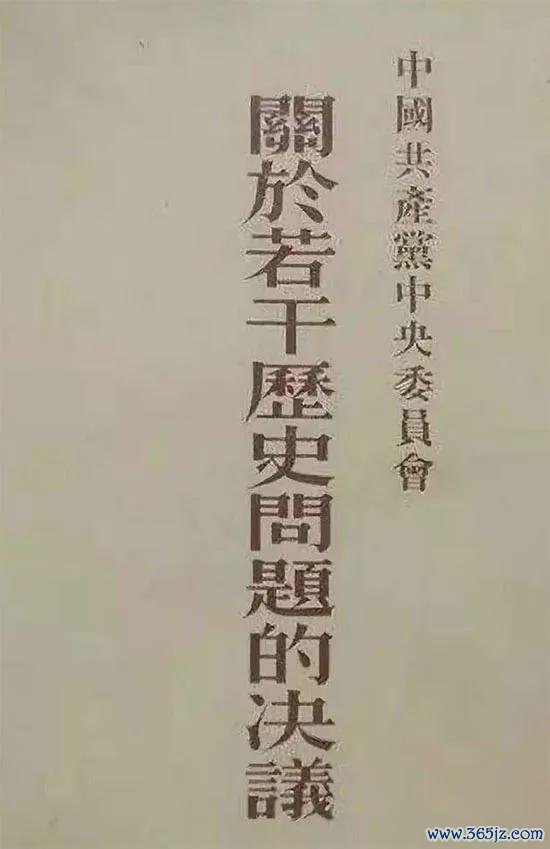 中國共產黨中央委員會
關於若干歷史問題的决議
www.365jz.com